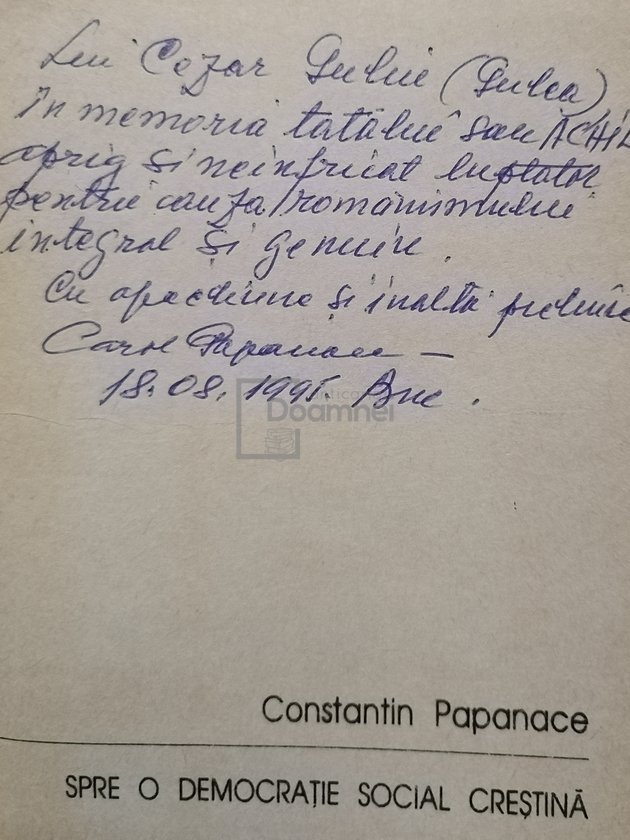 Lui Cezar Guliu (Gulea)
În memoria tatălui său ACHIL
aprig și neînfricat luptător
pentru cauza românismului
integral și genuin.
Cu afecțiune și înaltă prețuire
Carol Papanace —
18.08.1995. Buc.
Doamnei
Constantin Papanace
SPRE O DEMOCRAȚIE SOCIAL CREȘTINĂ